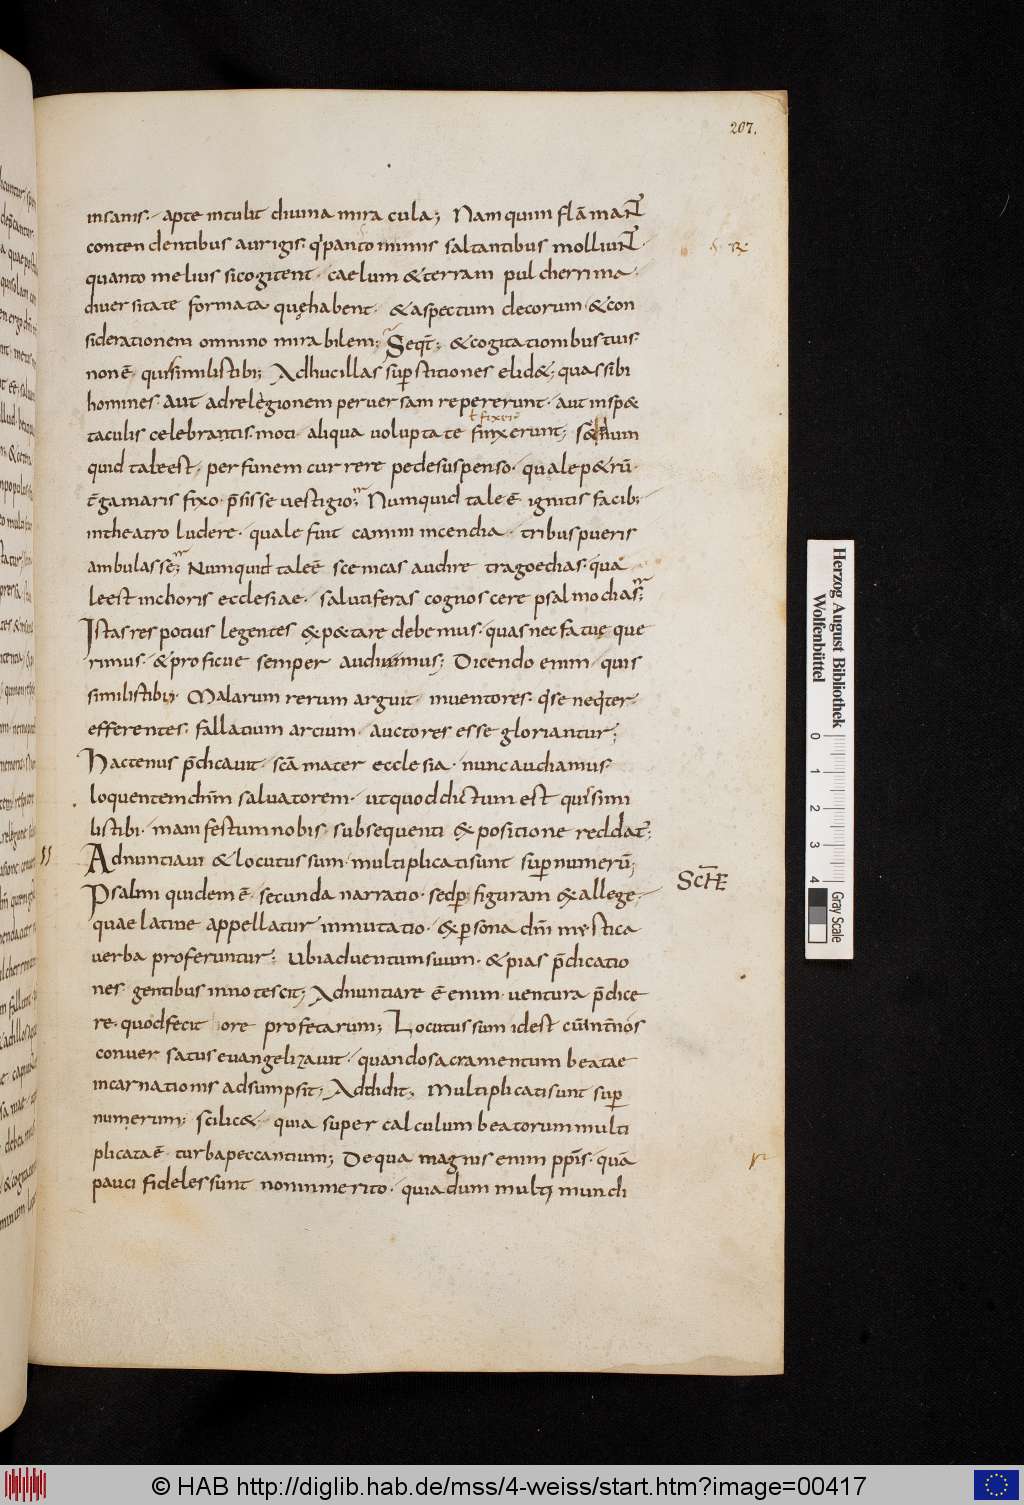 207.
insanis· apte intulit divina miracula; Nam quim flāmaN̄
contendentibus aurigis· qͥ pantomimis saltantibus molliuN̄·
quanto melius si cogitent· caelum & terram pulcherrima
diversitate formata quę habent· & aspectum decorum· & con
siderationem omnino mirabilem; Seqt̄; & cogitationibus tuis·
non ē· qui similis tibi; Adhuc illas sup̄stitiones elid&; quas sibi
homines· aut ad relegionem perversam repererunt· aut in sp&
ł fixerͭ
taculis celebrantis· moti· aliqua voluptate finxerunt; s& num
quid tale est· per funem currere pede suspenso· quale p&rū·
t̄ga maris fixo· p̄sisse vestigio; Numquid tale ē ignitis facib;
in theatro ludere· quale fuit camini incendia· tribus pueris
ambulasse; Numquid tale ē scenicas audire tragoedias· qua
le est in choris ecclesiae· salutiferas cognoscere psalmodias;
Istas res potius legentes exp&tare debemus· quas nec fatuę que
rimus· & proficue semper audimus; Dicendo enim· quis
similis tibi; Malarum rerum arguit inventores· qͥ se neqͥter
efferentes· fallatium artium· auctores esse gloriantur;
Hactenus p̄dicavit· scā mater ecclesia· nunc audiamus
loquentem dn̄m salvatorem· ut quod dictum est quis simi
lis tibi· manifestum nobis subsequenti expositione reddat̄;
55
Adnuntiavi & locutus sum· multiplicati sunt sup̄ numerū;
SCHE
Psalmi quidem ē· secunda narratio· sed p̄ figuram exallege·
quae latine appellatur inmutatio· ex p̄sona dn̄i mystica
verba proferuntur; Ubi adventum suum· & pias p̄dicatio
nes gentibus innotescit; Adnuntiare ē enim ventura p̄dice
re· quod fecit ore profetarum; Locutus sum id est cū int̄ nos
conversatus evangelizavit· quando sacramentum beatae
incarnationis adsumpsit; Addidit; Multiplicati sunt sup̄
numerum; scilic& quia super calculum beatorum multi
plicata ē· turba peccantium; De qua magnis enim pp̄is· quā
pauci fideles sunt non inmerito· quia dum multi mundi
Herzog August Bibliothek
Wolfenbüttel
0 1 2 3 4
Gray Scale
© HAB http://diglib.hab.de/mss/4-weiss/start.htm?image=00417